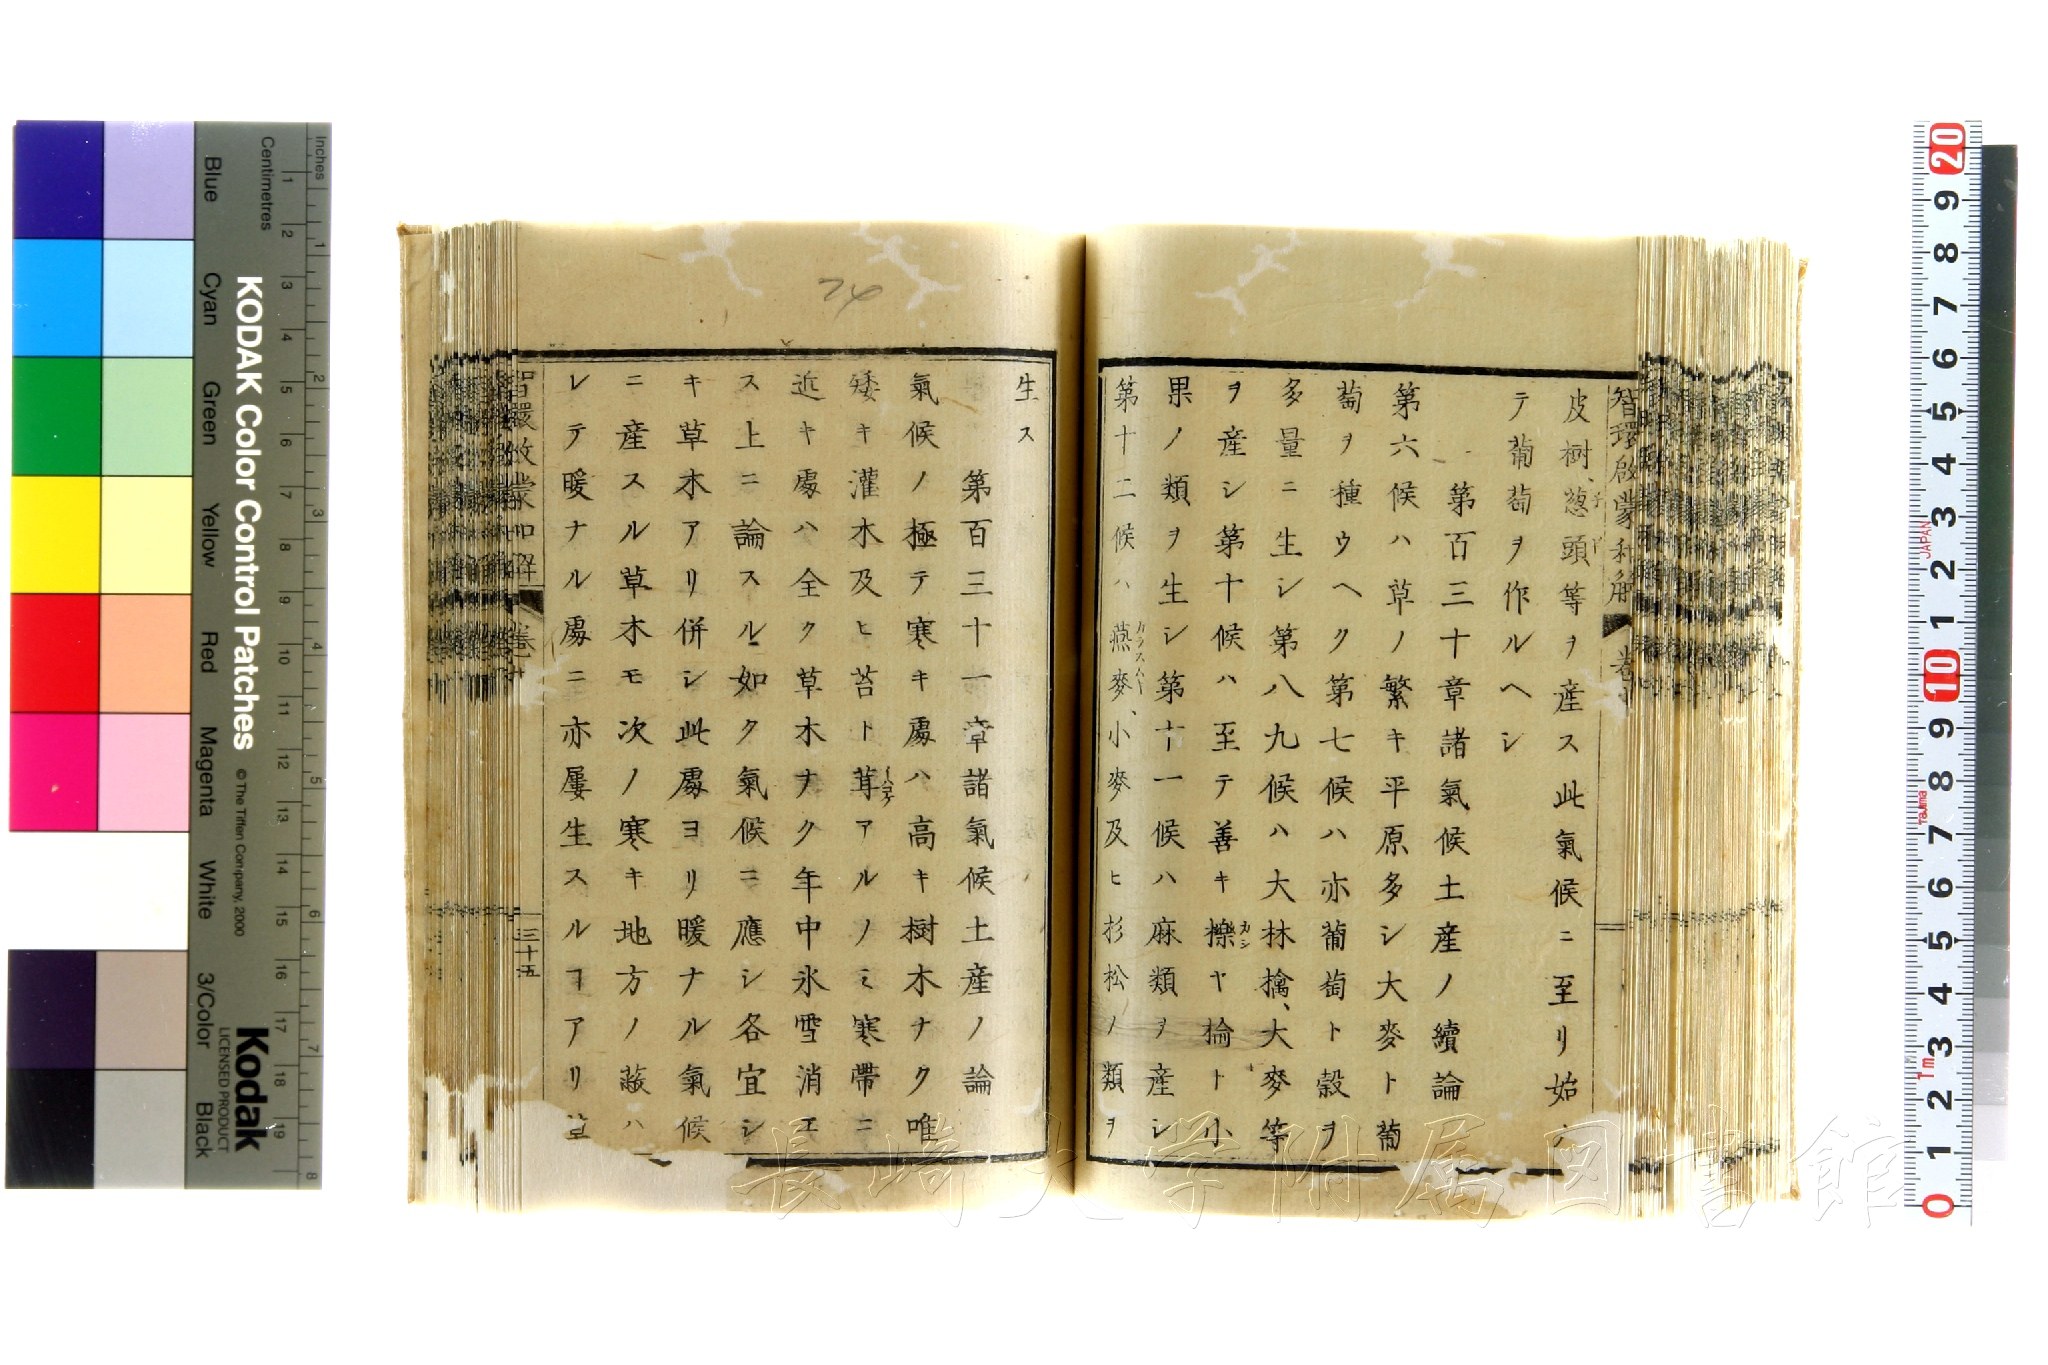 皮樹、葱頭等ヲ産ス此氣候ニ至リ始メ
テ葡萄ヲ作ルヘシ
第百三十章諸氣候土産ノ續論
第六候ハ草ノ繁キ平原多シ大麥ト葡
萄ヲ種ウヘク第七候ハ亦葡萄ト穀ヲ
多量ニ生シ第八九候ハ大林檎、大麥等
ヲ産シ第十候ハ至テ善キ擽ヤ掄ト小
カシ
果ノ類ヲ生シ第十一候ハ麻類ヲ産シ
第十二候ハ燕麥、小麥及ヒ杉松ノ類ヲ
カラスムキ
智環啟蒙和解
生ス
第百三十一章諸氣候土産ノ論
氣候ノ極テ寒キ處ハ高キ樹木ナク唯
矮キ灌木及ヒ苔ト茸アルノミ寒帶ニ
近キ處ハ全ク草木ナク年中氷雪消エ
ス上ニ論スル如ク氣候ニ應シ各宜シ
キ草木アリ併シ此處ヨリ暖ナル氣候
ニ産スル草木モ次ノ寒キ地方ノ蔽ハ
レテ暖ナル處ニ亦屢生スルヿアリ
三十五
24
長崎大学附属図書館
KODAK Color Control Patches
© The Tiffen Company, 2000
Kodak
LICENSED PRODUCT
Inches
Centimetres
Blue
Cyan
Green
Yellow
Red
Magenta
White
3/Color
Black
1 2 3 4 5 6 7 8 9 10 11 12 13 14 15 16 17 18 19
1 2 3 4 5 6 7 8
20 9 8 7 6 5 4 3 2 1 10 9 8 7 6 5 4 3 2 1 0
JAPAN
Tajima
Tm